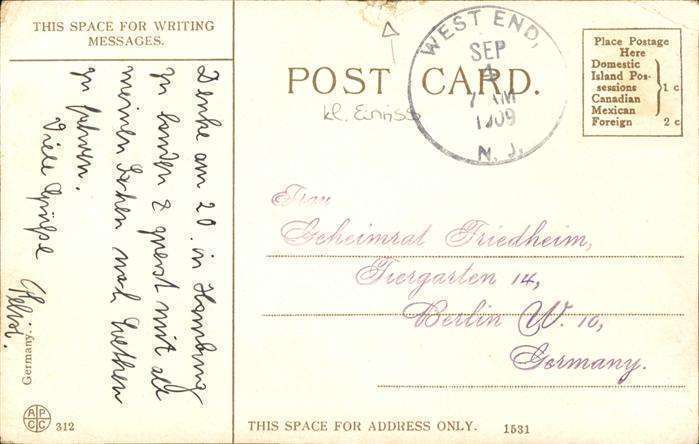 THIS SPACE FOR WRITING
MESSAGES.
Denke am 20. in Hamburg
zu landen & zuerst mit all
meinen Sachen nach Coethen
zu fahren.
Viele Grüße
Germany.
APCC
312
POST CARD.
kl. Einriss
WEST END,
SEP
7 AM
1909
N. J.
Place Postage
Here
Domestic
Island Pos-
sessions
Canadian
Mexican
1 c
Foreign 2 c
Frau
Geheimrat Friedheim,
Tiergarten 14,
Berlin W. 10,
Germany.
THIS SPACE FOR ADDRESS ONLY.
1531